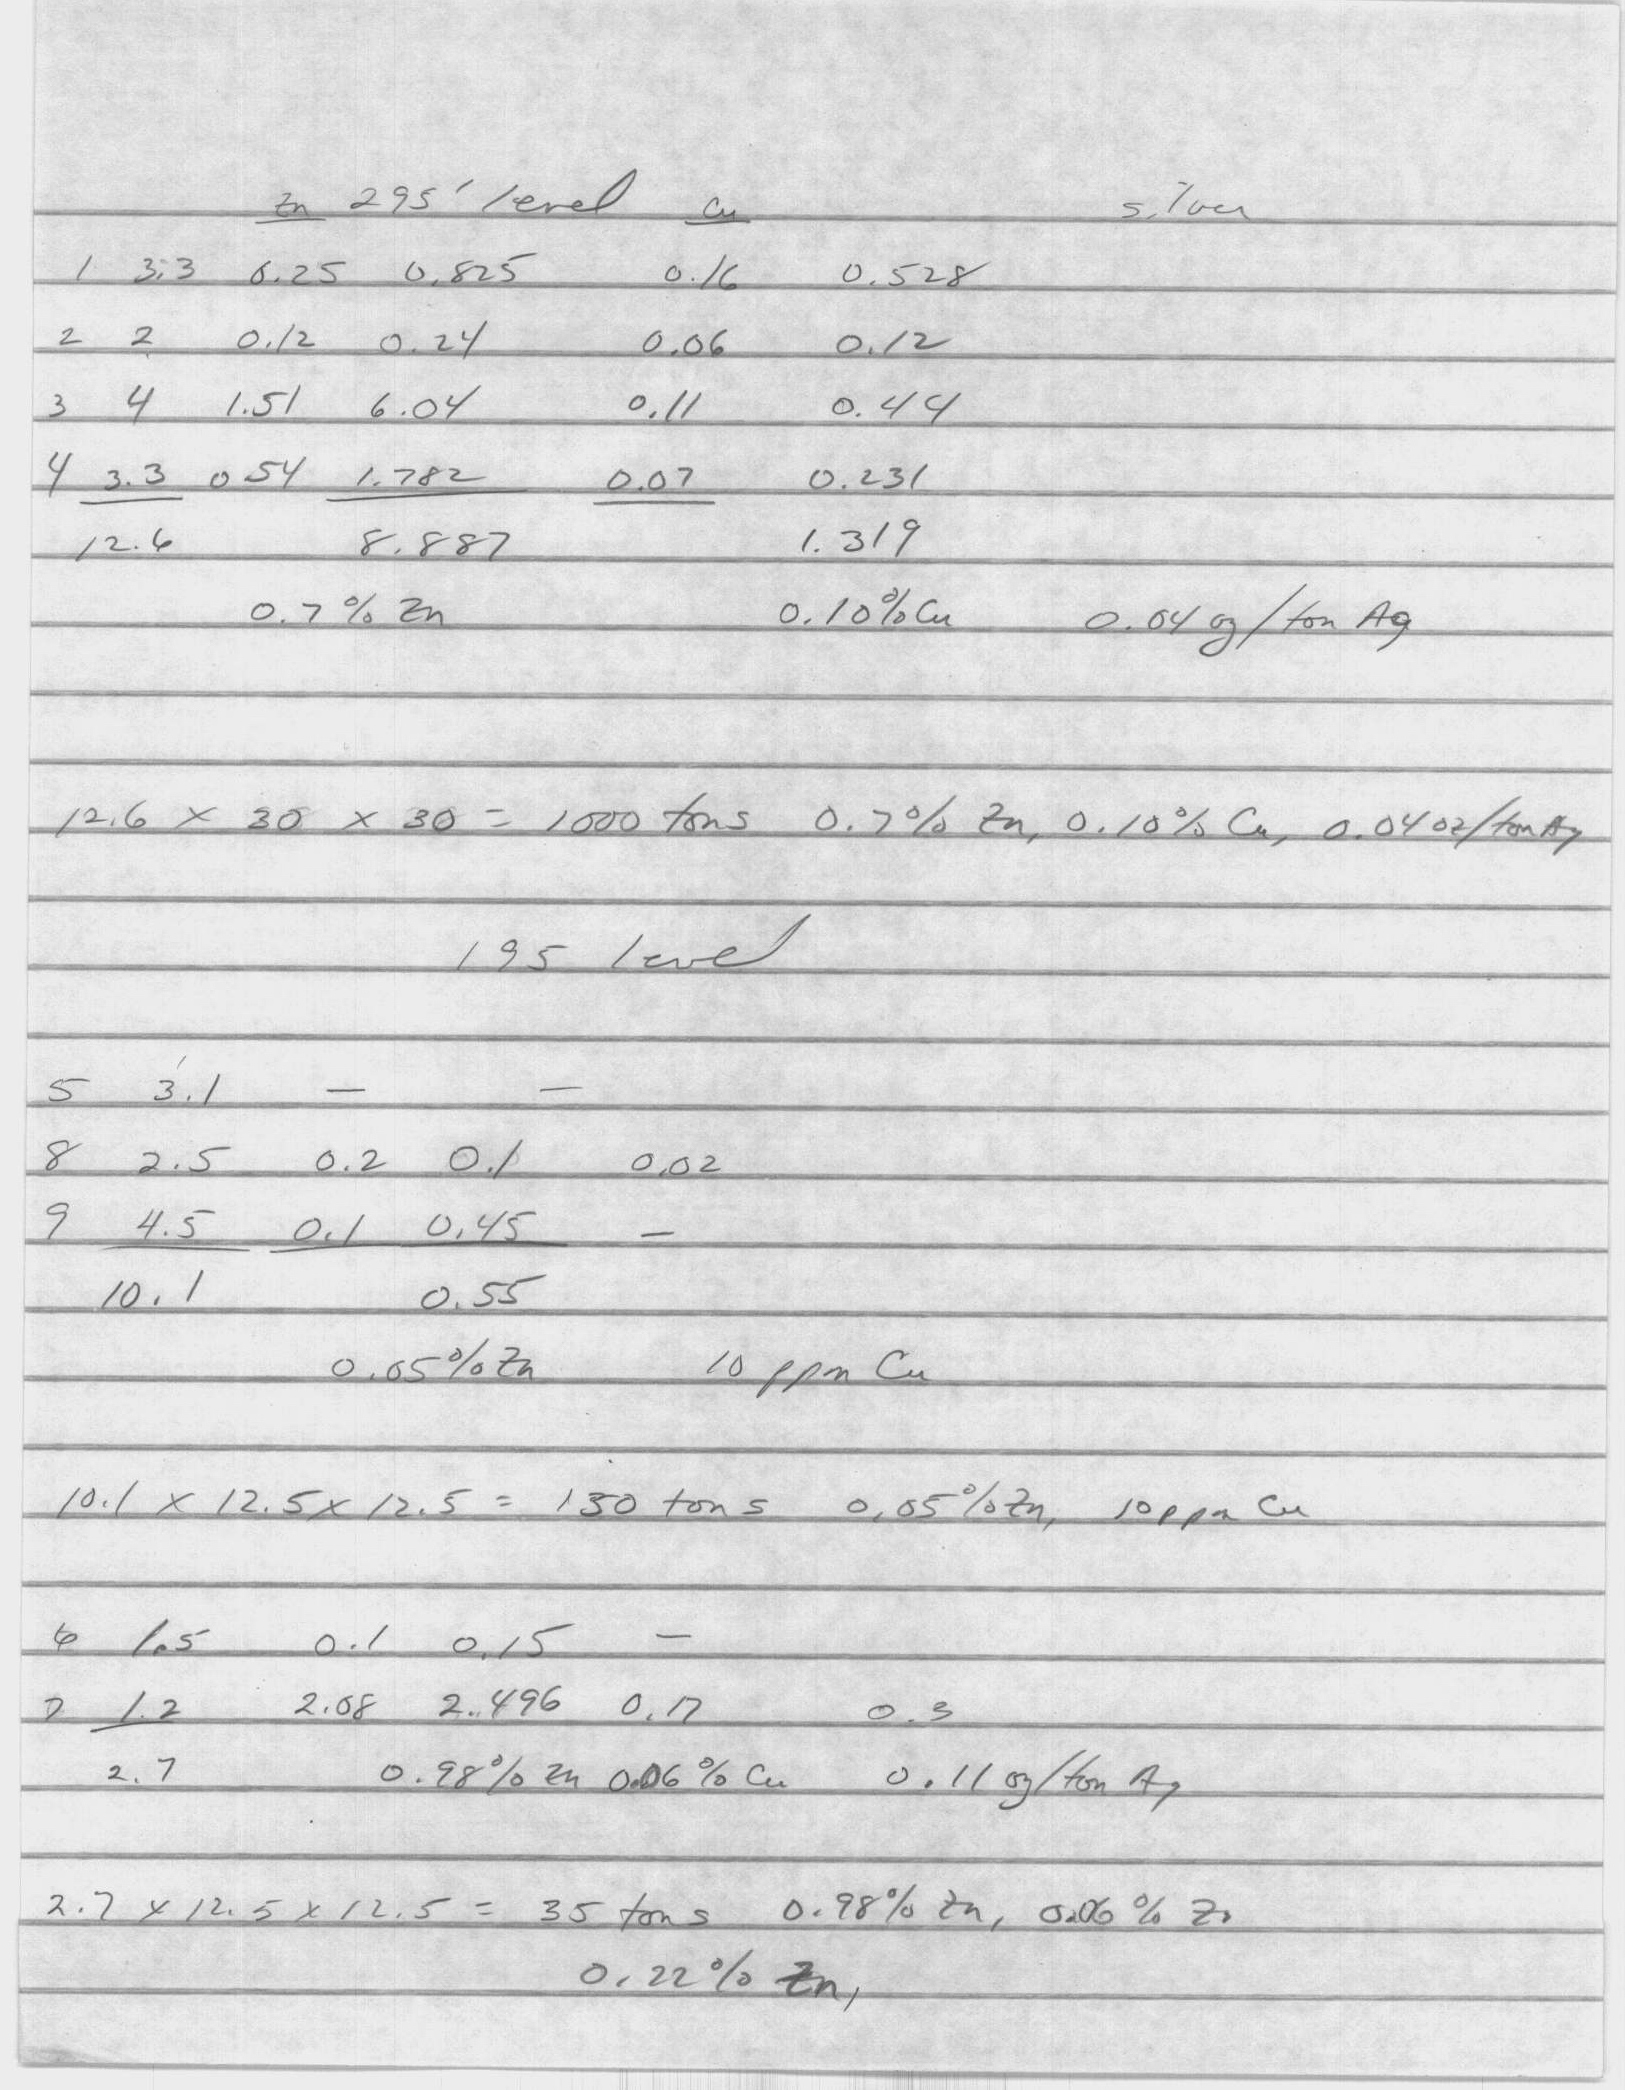 Zn 295' level Cu silver
1 3.3 0.25 0.825 0.16 0.528
2 2 0.12 0.24 0.06 0.12
3 4 1.51 6.04 0.11 0.44
4 3.3 0.54 1.782 0.07 0.231
12.6 8.887 1.319
0.7% Zn 0.10% Cu 0.04 oz/ton Ag
12.6 x 30 x 30 = 1000 tons 0.7% Zn, 0.10% Cu, 0.04 oz/ton Ag
195 level
5 3.1 — —
8 2.5 0.2 0.1 0.02
9 4.5 0.1 0.45 —
10.1 0.55
0.05% Zn 10 ppm Cu
10.1 x 12.5 x 12.5 = 130 tons 0.05% Zn, 10 ppm Cu
6 1.5 0.1 0.15 —
7 1.2 2.08 2.496 0.17 0.3
2.7 0.98% Zn 0.06% Cu 0.11 oz/ton Ag
2.7 x 12.5 x 12.5 = 35 tons 0.98% Zn, 0.06% Zn
0.22% Zn,